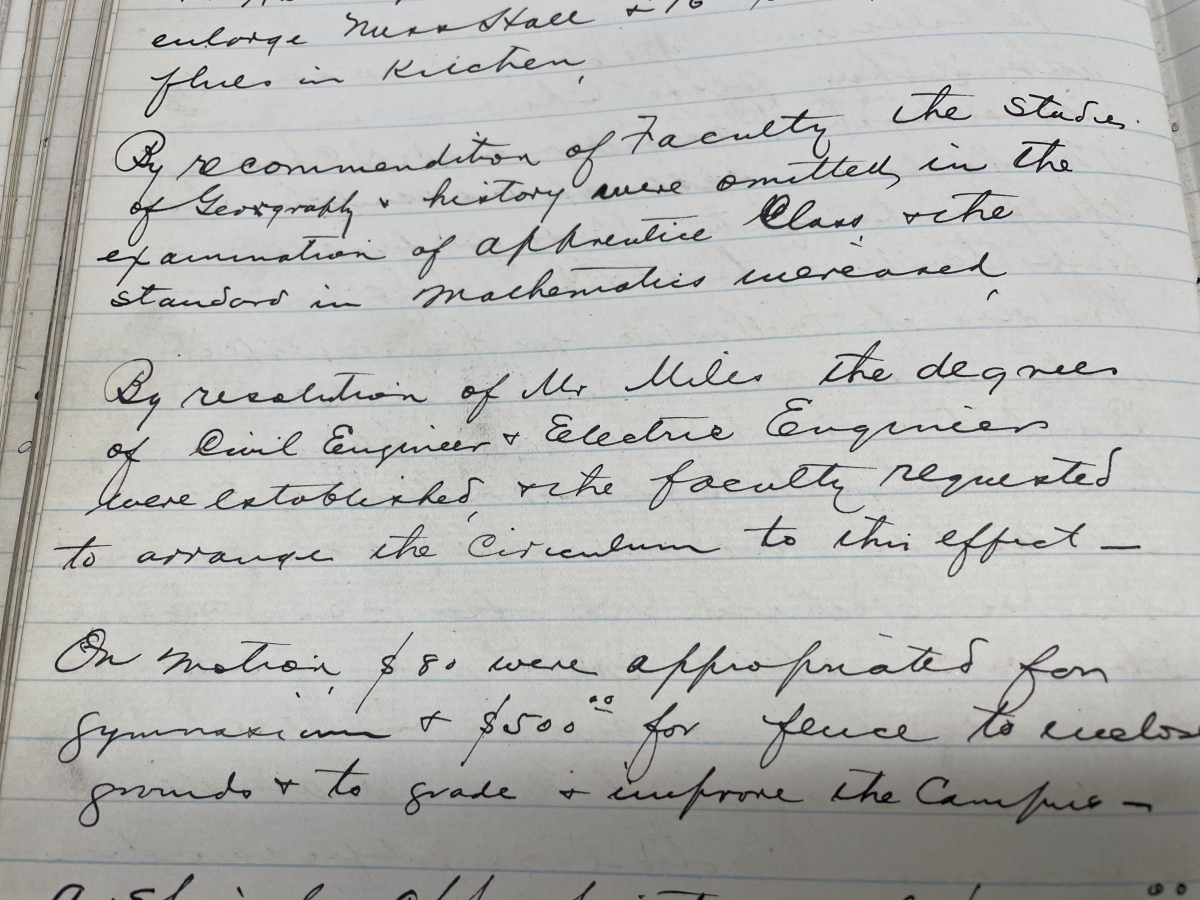 enlarge Mess Hall & to
flues in Kitchen,
By recommendition of Faculty the studies
of Geography & history were omitted, in the
examination of apprentice Class, & the
standard in Mathematics increased,
By resolution of Mr Miles the degrees
of Civil Engineer & Electric Engineers
were established, & the faculty requested
to arrange the Ciriculum to this effect —
On motion, $80 were appropriated for
gymnasium & $500.00 for fence to inclose
grounds & to grade & improve the Campus —